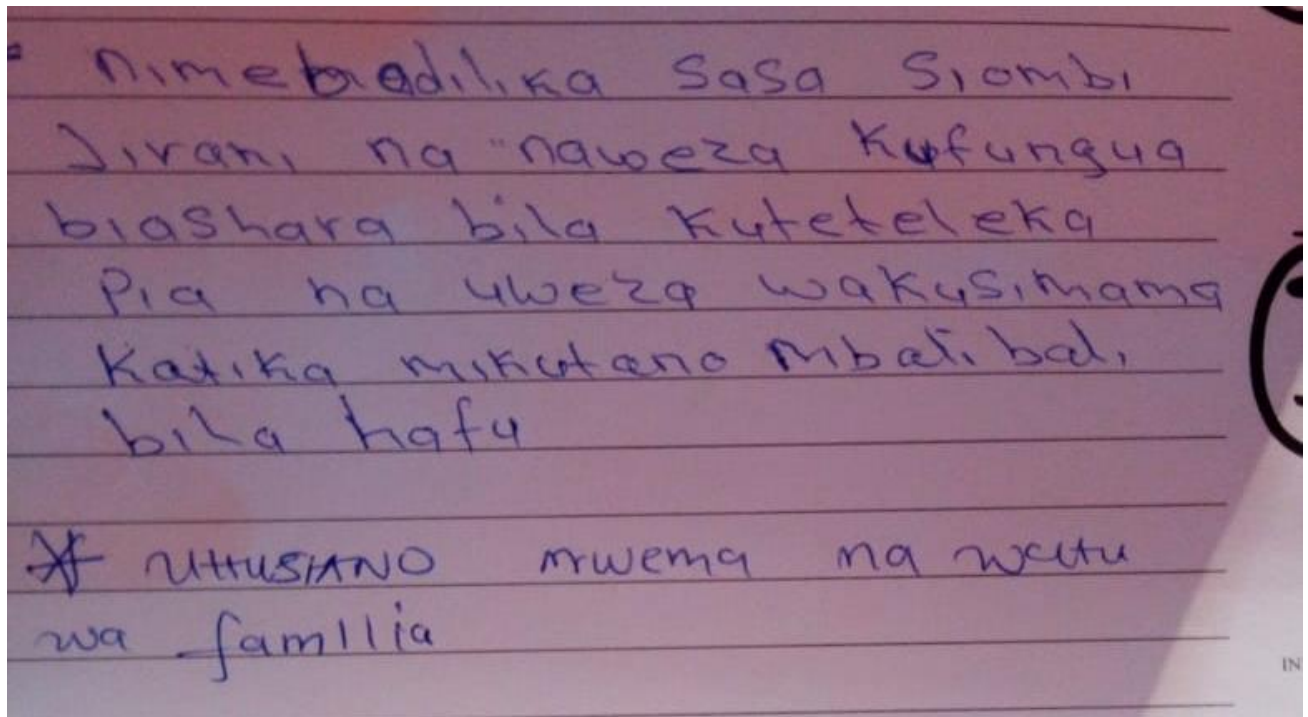 nimebadilika sasa siombi
Jirani na naweza kufungua
biashara bila kuteteleka
Pia na uweza wakusimama
Katika mikutano mbali bali
bila hafu
* UHUSIANO mwema na watu
wa familia
IN